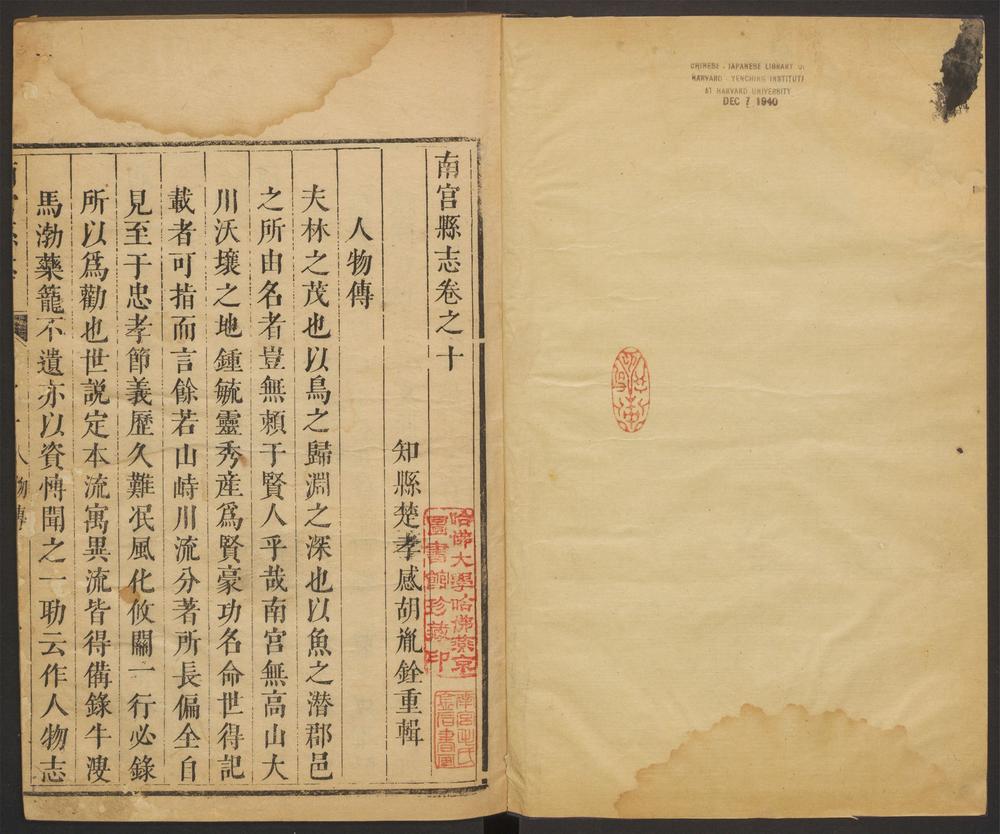 CHINESE - JAPANESE LIBRARY OF
HARVARD - YENCHING INSTITUTE
AT HARVARD UNIVERSITY
DEC 7 1940
南宮縣志卷之十
知縣楚孝感胡胤銓重輯
人物傳
夫林之茂也以鳥之歸淵之深也以魚之潛郡邑
之所由名者豈無頼于賢人乎哉南宮無高山大
川沃壤之地鍾毓靈秀産爲賢豪功名命世得記
載者可指而言餘若山峙川流分著所長偏全自
見至于忠孝節義歷久難泯風化攸關一行必錄
所以爲勸也世説定本流寓異流皆得備錄牛溲
馬渤藥籠不遺亦以資愽聞之一助云作人物志
人物傳
哈佛大學哈佛燕京
圖書館珍藏印